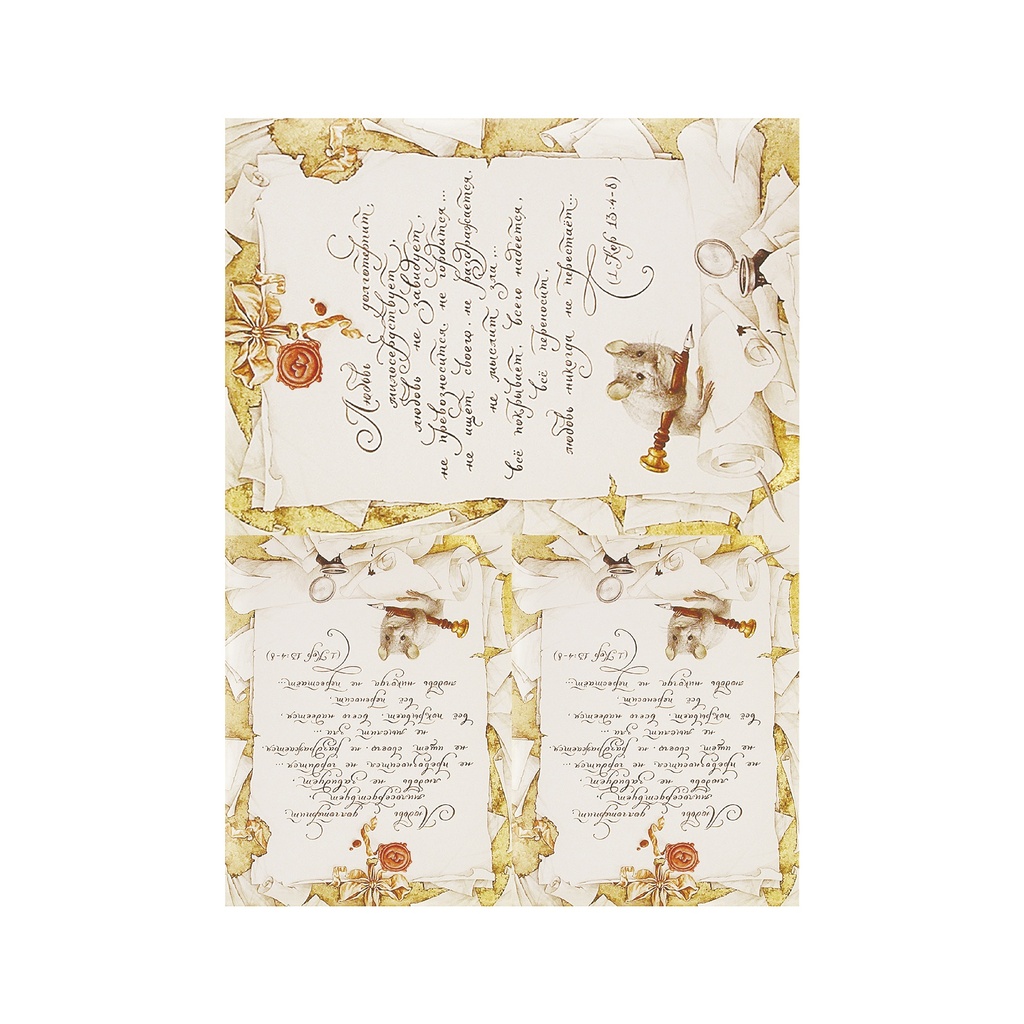 Любовь долготерпит,
милосердствует,
любовь не завидует,
не превозносится, не гордится...
не ищет своего, не раздражается,
не мыслит зла...
всё покрывает, всего надеется,
всё переносит,
любовь никогда не перестаёт...
(1 Кор 13:4-8)
Любовь долготерпит,
милосердствует,
любовь не завидует,
не превозносится, не гордится...
не ищет своего, не раздражается,
не мыслит зла...
всё покрывает, всего надеется,
всё переносит,
любовь никогда не перестаёт...
(1 Кор 13:4-8)
Любовь долготерпит,
милосердствует,
любовь не завидует,
не превозносится, не гордится...
не ищет своего, не раздражается,
не мыслит зла...
всё покрывает, всего надеется,
всё переносит,
любовь никогда не перестаёт...
(1 Кор 13:4-8)